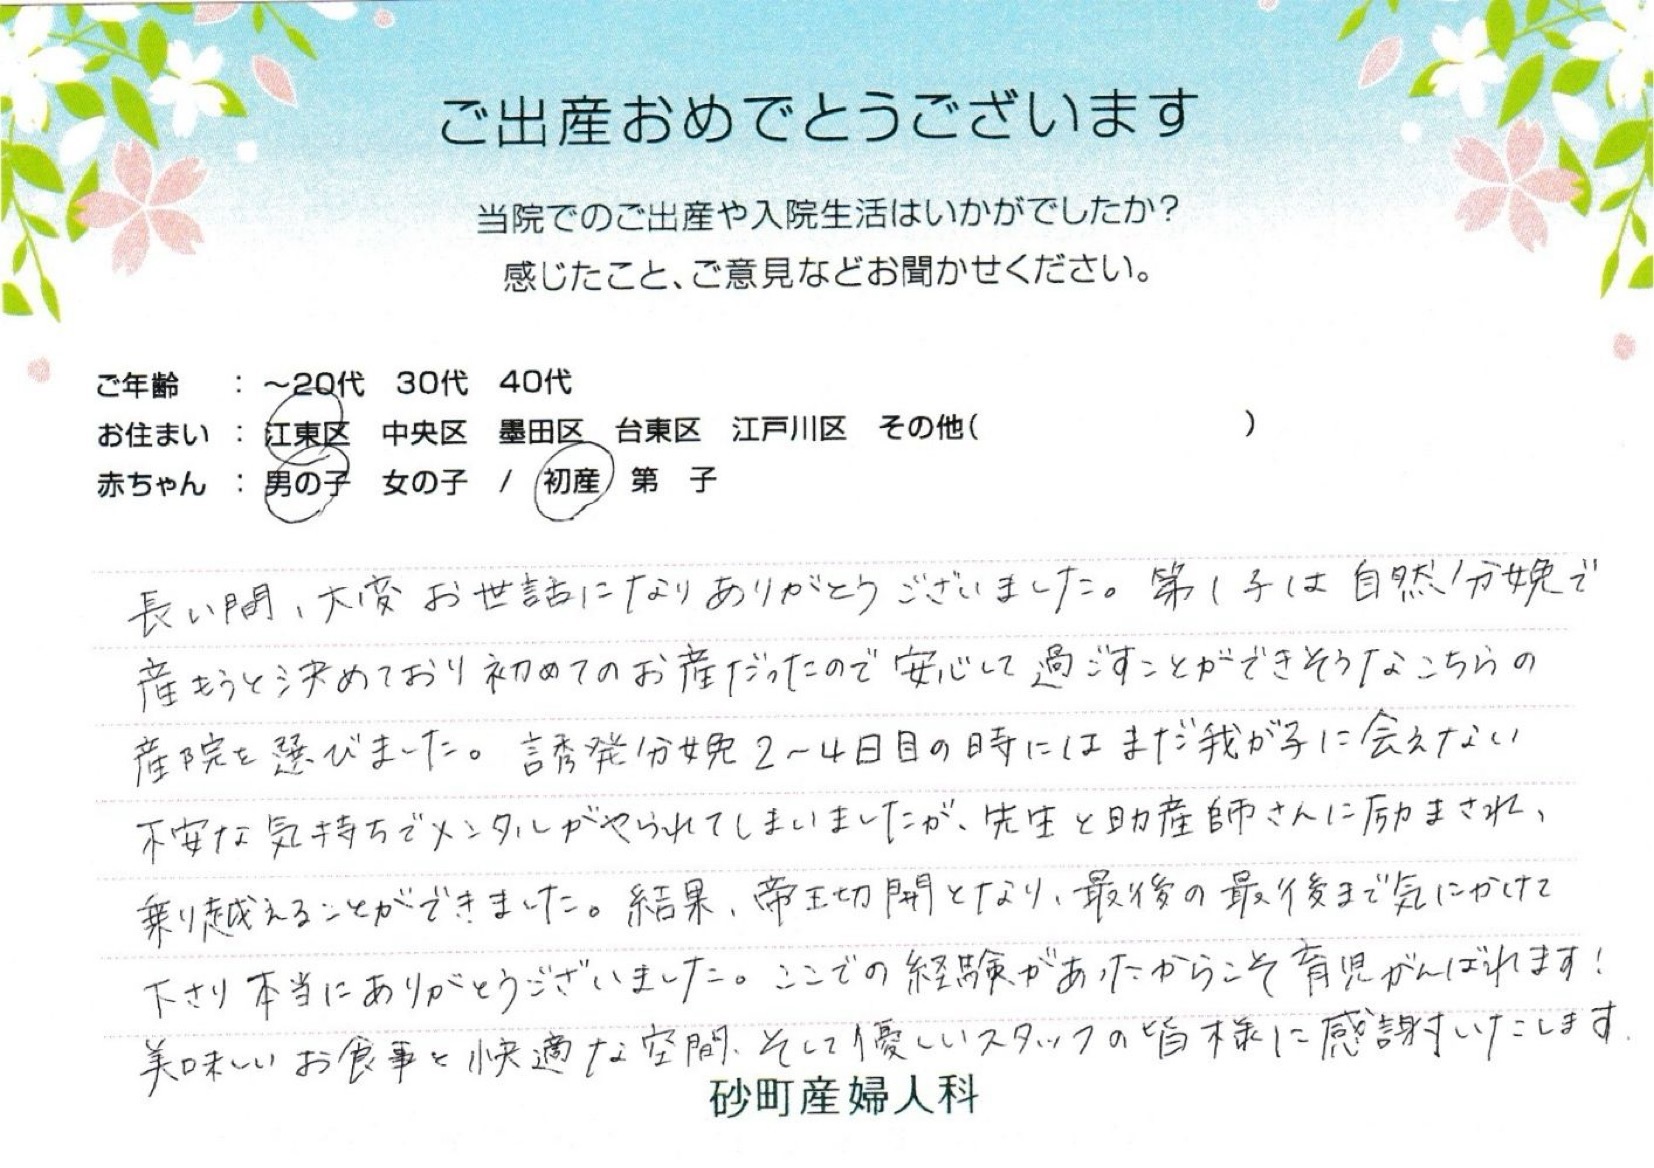 ご出産おめでとうございます
当院でのご出産や入院生活はいかがでしたか?
感じたこと、ご意見などお聞かせください。
ご年齢 : ~20代 30代 40代
お住まい : 江東区 中央区 墨田区 台東区 江戸川区 その他( )
赤ちゃん : 男の子 女の子 / 初産 第 子
長い間、大変お世話になりありがとうございました。第1子は自然分娩で
産もうと決めており初めてのお産だったので安心して過ごすことができそうなこちらの
産院を選びました。誘発分娩2~4日目の時にはまだ我が子に会えない
不安な気持ちでメンタルがやられてしまいましたが、先生と助産師さんに励まされ、
乗り越えることができました。結果、帝王切開となり、最後の最後まで気にかけて
下さり本当にありがとうございました。ここでの経験があったからこそ育児がんばれます!
美味しいお食事と快適な空間、そして優しいスタッフの皆様に感謝いたします.
砂町産婦人科